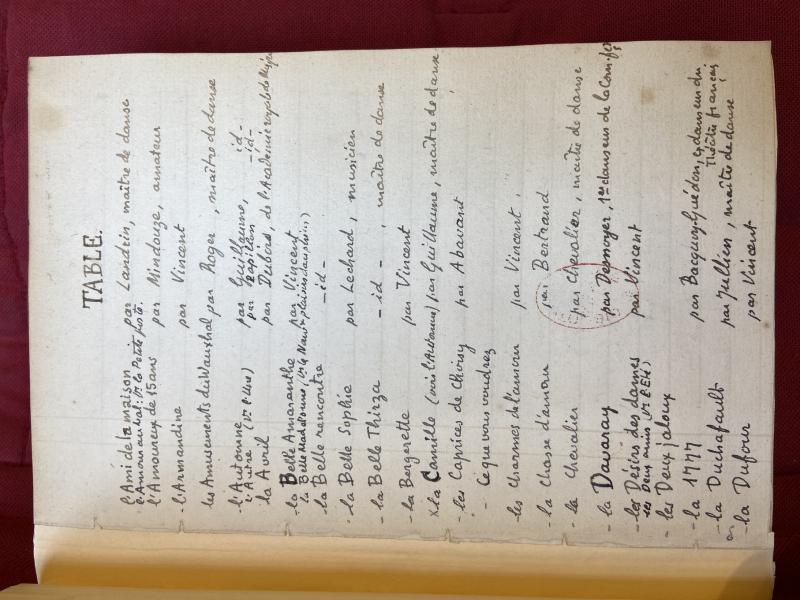 TABLE.
l'Ami de la maison par Landrin, maître de danse
l'Amour au bal: Vr la Petite poste.
l'Amoureux de 15 ans par Mindouze, amateur
- l'Armandine par Vincent
les Amusements du Wauxhal par Roger, maître de danse
- l'Automne par Guillaume, id -
l'Autre (Vr l'Une) par Papillon -id-
la Avril par Dubois, de l'Académie royale de
- la Belle Amaranthe par Vincent
la Belle Madelonne (Vr les Nouv.x plaisirs
la Belle rencontre -id-
- la Belle Sophie par Lechard, musicien
- la Belle Thirza - id - , maître de danse
- la Bergerette par Vincent
x la Camille (voir l'Automne) par Guillaume, maître de danse
- les Caprices de Choisy par Abavant
- Ce que vous voudrez
- les Charmes de l'amour par Vincent.
- la chasse d'amour par Bertrand
- la Chevalier par Chevalier, maître de danse
- la Davaray par Desnoyer, 1er danseur de la Com.
- les Désirs des dames par Vincent
- les Deux amis (Vr
- les Deux jaloux
- la 1777 par Bacquoy-Guédon, ex danseur du
Théâtre français
- la Duchafault par Jullien, maître de danse
- la Dufour par Vincent